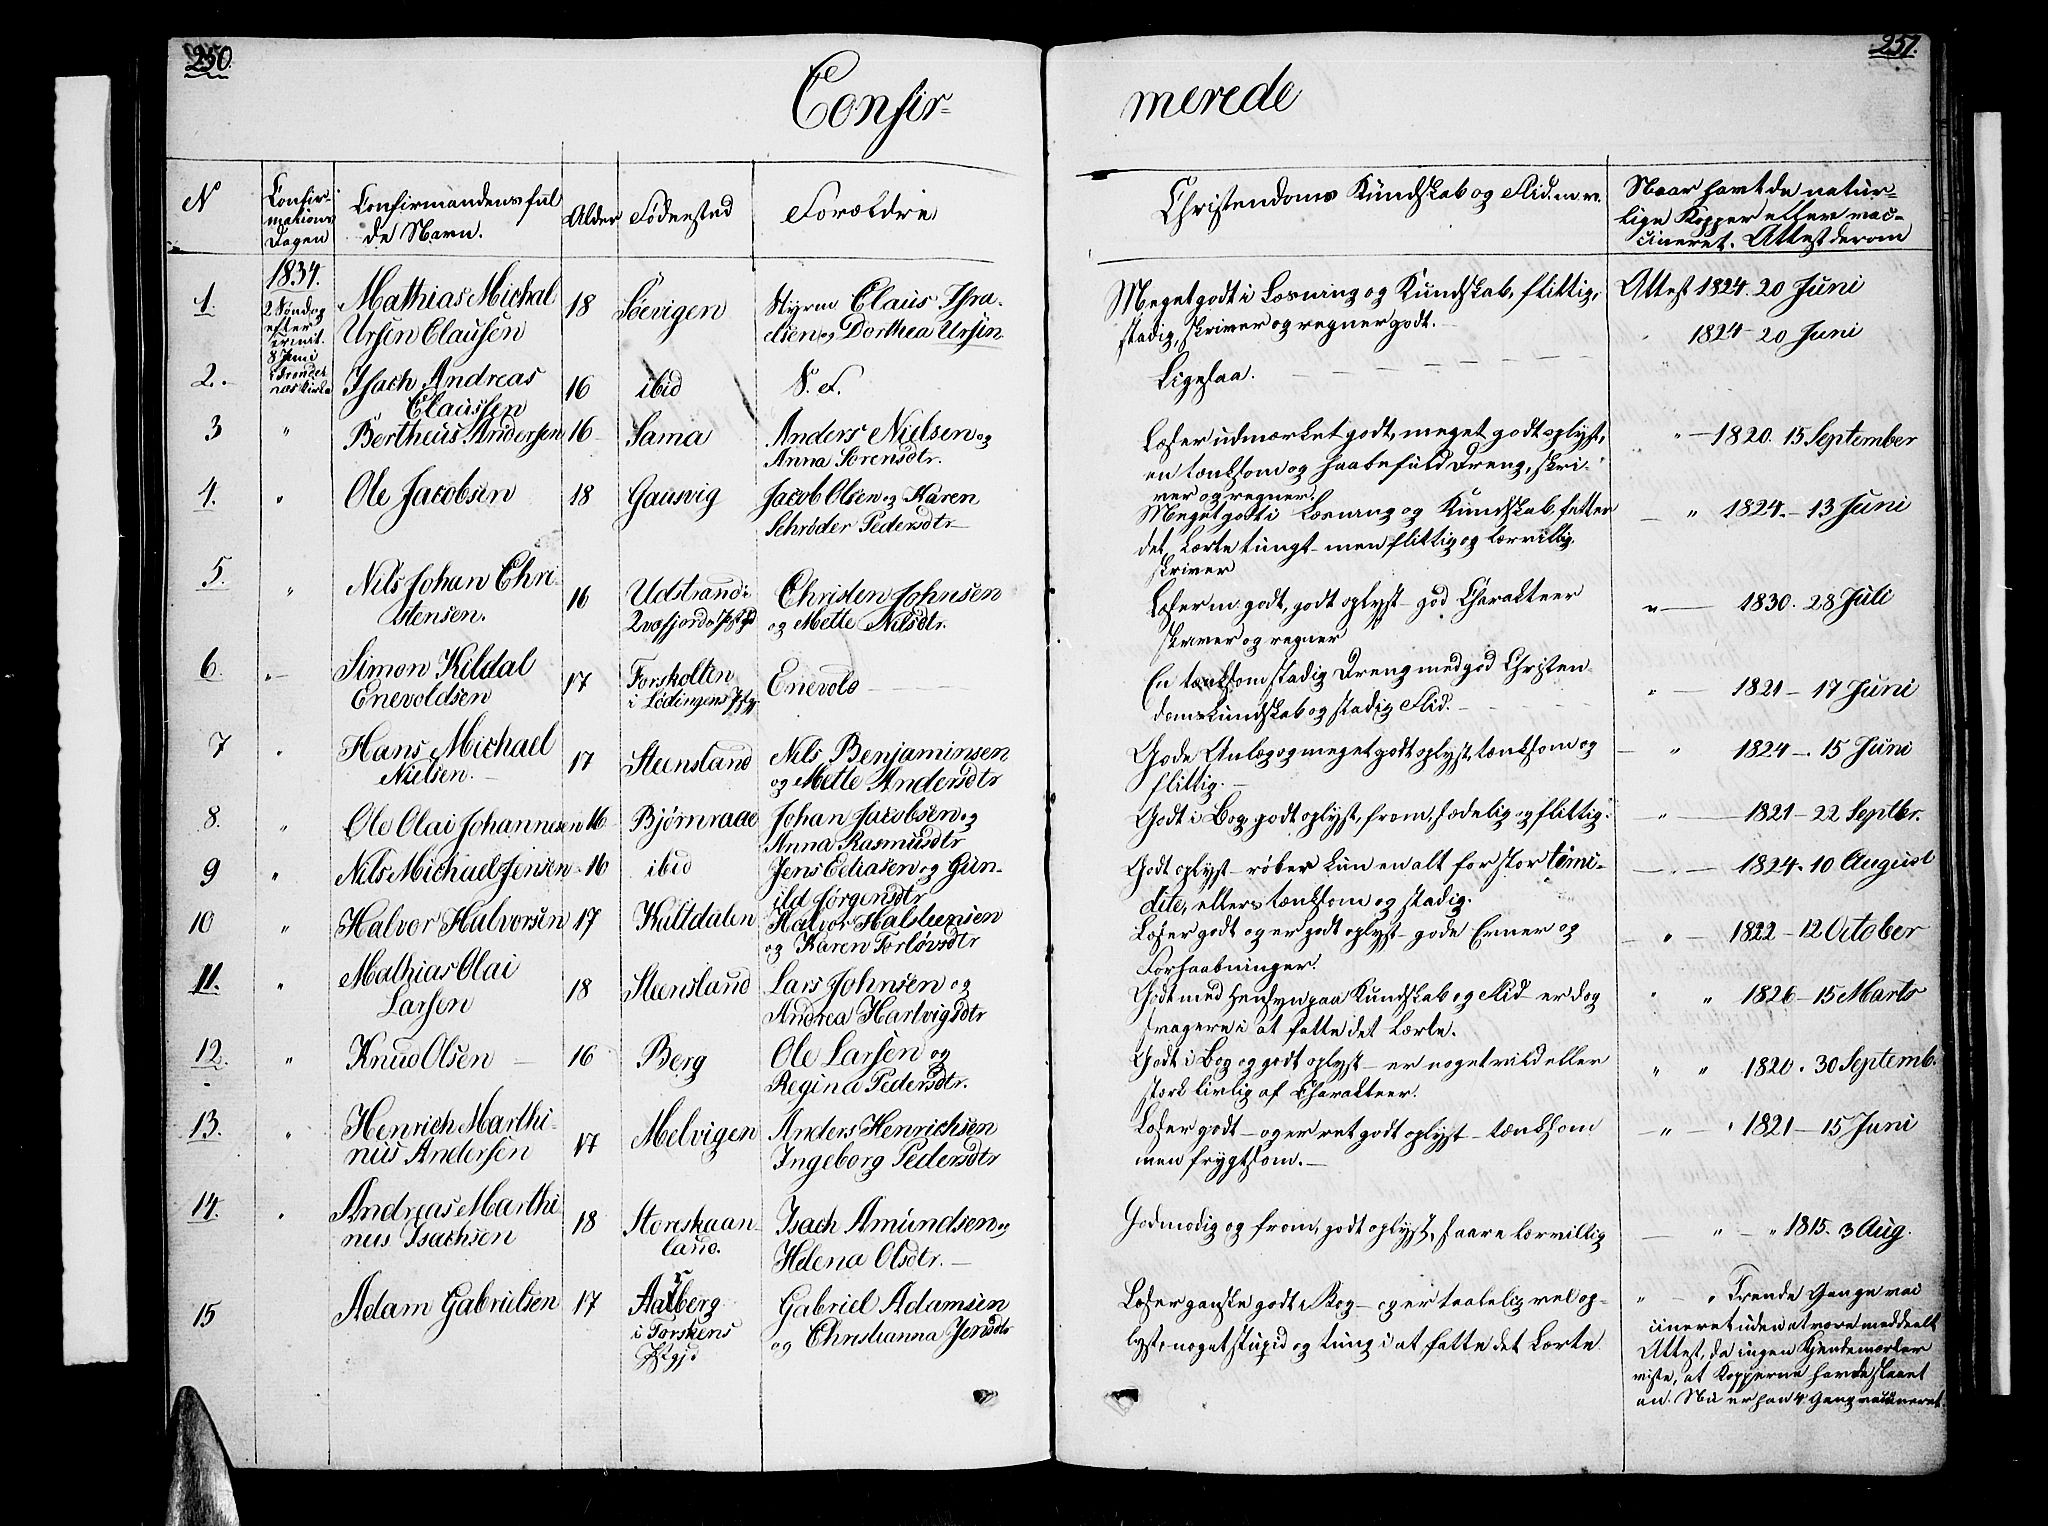 250.
251.
Confir-
merede
N
Confir-
mations
Dagen
Confirmandens ful
de Navn.
Alder
Fødested
Forældre
Christendoms Kundskab og Flid. m. v.
Naar havt de natur-
lige Kopper eller vac-
cineret. Attest derom
1.
1834.
2 Søndag
efter
8 Juni
Mathias Michal
Ursin Clausen
18
Søevigen
Styrm Claus Isra-
elsen og Dorthea Ursin
Meget godt i Læsning og Kundskab, flittig,
stadig, skriver og regner godt.
Attest 1824. 20 Juni
1824 - 20 Juni
2.
Isach Andreas
Claussen
16
ibid
S. F.
Ligesaa.
3
"
Bertheus Andersen
16
Sama
Anders Nielsen og
Anna Sørensdtr.
Læser udmærket godt, meget godt oplyst,
en tænksom og haabefuld Dreng, skri-
ver og regner.
" - 1820. 15 September
4.
"
Ole Jacobsen
18
Gausvig
Jacob Olsen og Karen
Schrøder Pedersdtr
Meget godt i Læsning og Kundskab, fatter
det Lærte tungt - men flittig og lærvillig.
skriver
- " 1824. - 13 Juni
5.
"
Nils Johan Chri-
stensen.
16
Udstrand i
Qvæfjords Pstgjd
Christen Johnsen
og Mette Nilsdtr.
Læser m. godt, godt oplyst - god Charakteer
skriver og regner
" - 1830. 28 Juli
6.
"
Simon Kildal
Enevoldsen
17
Forskolten
i Lødingens Pstgj.
Enevold
En tænksom stadig Dreng med god Christen
doms kundskab og stadig Flid.
" - 1821 - 17 Juni
7
"
Hans Michael
Nielsen.
17
Steensland
Nils Benjaminsen
og Mette Andersdtr
Gode Anlæg og meget godt oplyst, tænksom og
flittig.
- " 1824 - 15 Juni
8.
"
Ole Olai Johannesen
16
Bjørnraae
Johan Jacobsen og
Anna Rasmusdtr
Godt i Bog godt oplyst, from, sædelig og flittig.
- " - 1821 - 22 Septbr.
9
"
Nils Michael Jensen
16
ibid
Jens Eliasen og Gun-
ild Jørgensdtr
Godt oplyst - røber kun en alt for stor timi-
dite, ellers tænksom og stadig.
- " - 1824. 10 August
10
"
Halvor Halvorsen
17
Kuldalen
Halvor Halsteensen
og Karen Torløvsdtr
Læser godt og er godt oplyst - gode Evner og
Forhaabninger.
- " - 1822 - 12 October
11.
"
Mathias Olai
Larsen
18
Steensland
Lars Johnsen og
Andrea Hartvigsdtr
Godt med Hensyn paa Kundskab og Flid - er dog
svagere i at fatte det Lærte.
" " 1826 - 15 Marts
12.
"
Knud Olsen
16
Berg
Ole Larsen og
Regina Pedersdtr.
Godt i Bog og godt oplyst - er noget vild eller
stærk livlig af Charakteer.
" " 1820. 30 Septemb.
13.
"
Henrich Marthi-
nus Andersen
17
Melvigen
Anders Henrichsen
Ingeborg Pedersdtr
Læser godt - og er ret godt oplyst - tænksom
men frygtsom.
- " - 1821 - 15 Juni
14.
"
Andreas Marthi
nus Isachsen
18
Storeskaan-
land.
Isach Amundsen og
Helena Olsdtr.
Godmodig og from, godt oplyst, saare lærvillig
- " - " 1815. 3 Aug.
15
Adam Gabrielsen
17
Aarberg
i Torskens
Pstgjd
Gabriel Adamsen
og Christianna Jensdtr
Læser ganske godt i Bog - og er taalelig vel op-
lyst, noget stupid og tung i at fatte det Lærte
" - " Trende Gange vac
cineret uden at være meddeelt
Attest, da ingen Kjendemærker
viste, at Kopperne havde slaaet
an. Nu er han 4. Gang vaccineret.